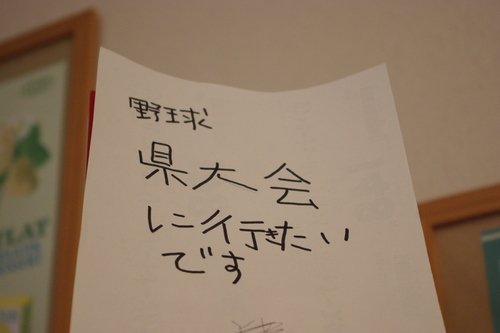 野球
県大会
に行きたい
です
LAT